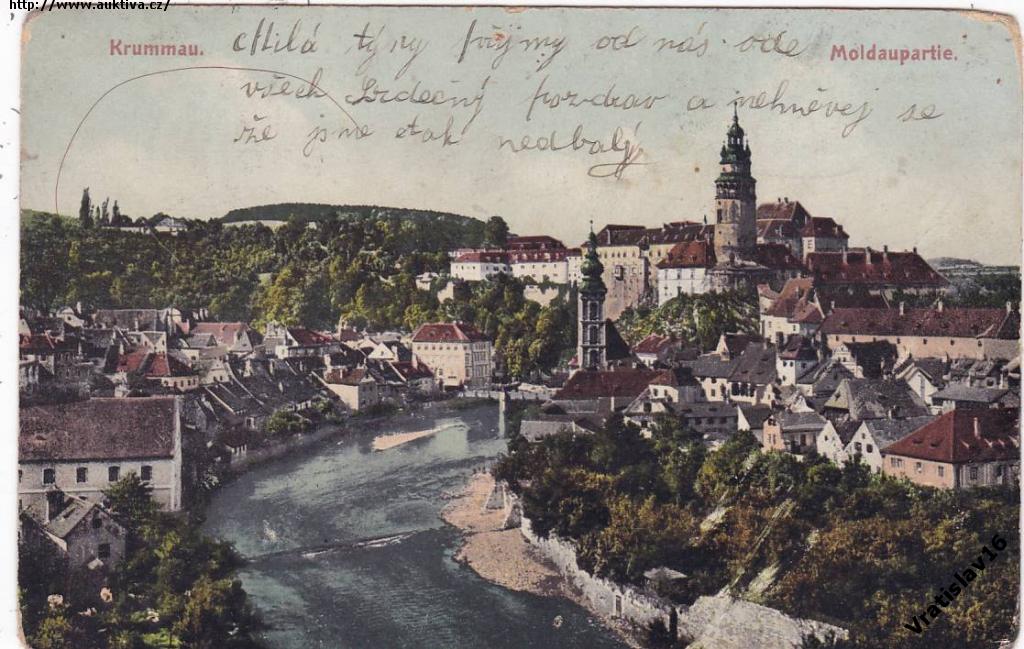 http://www.auktiva.cz/
Krummau.
Moldaupartie.
Milá týny přijmy od nás ode
všech Srdečný pozdrav a nehněvej se
že jsme etak nedbalý
Vratislav16